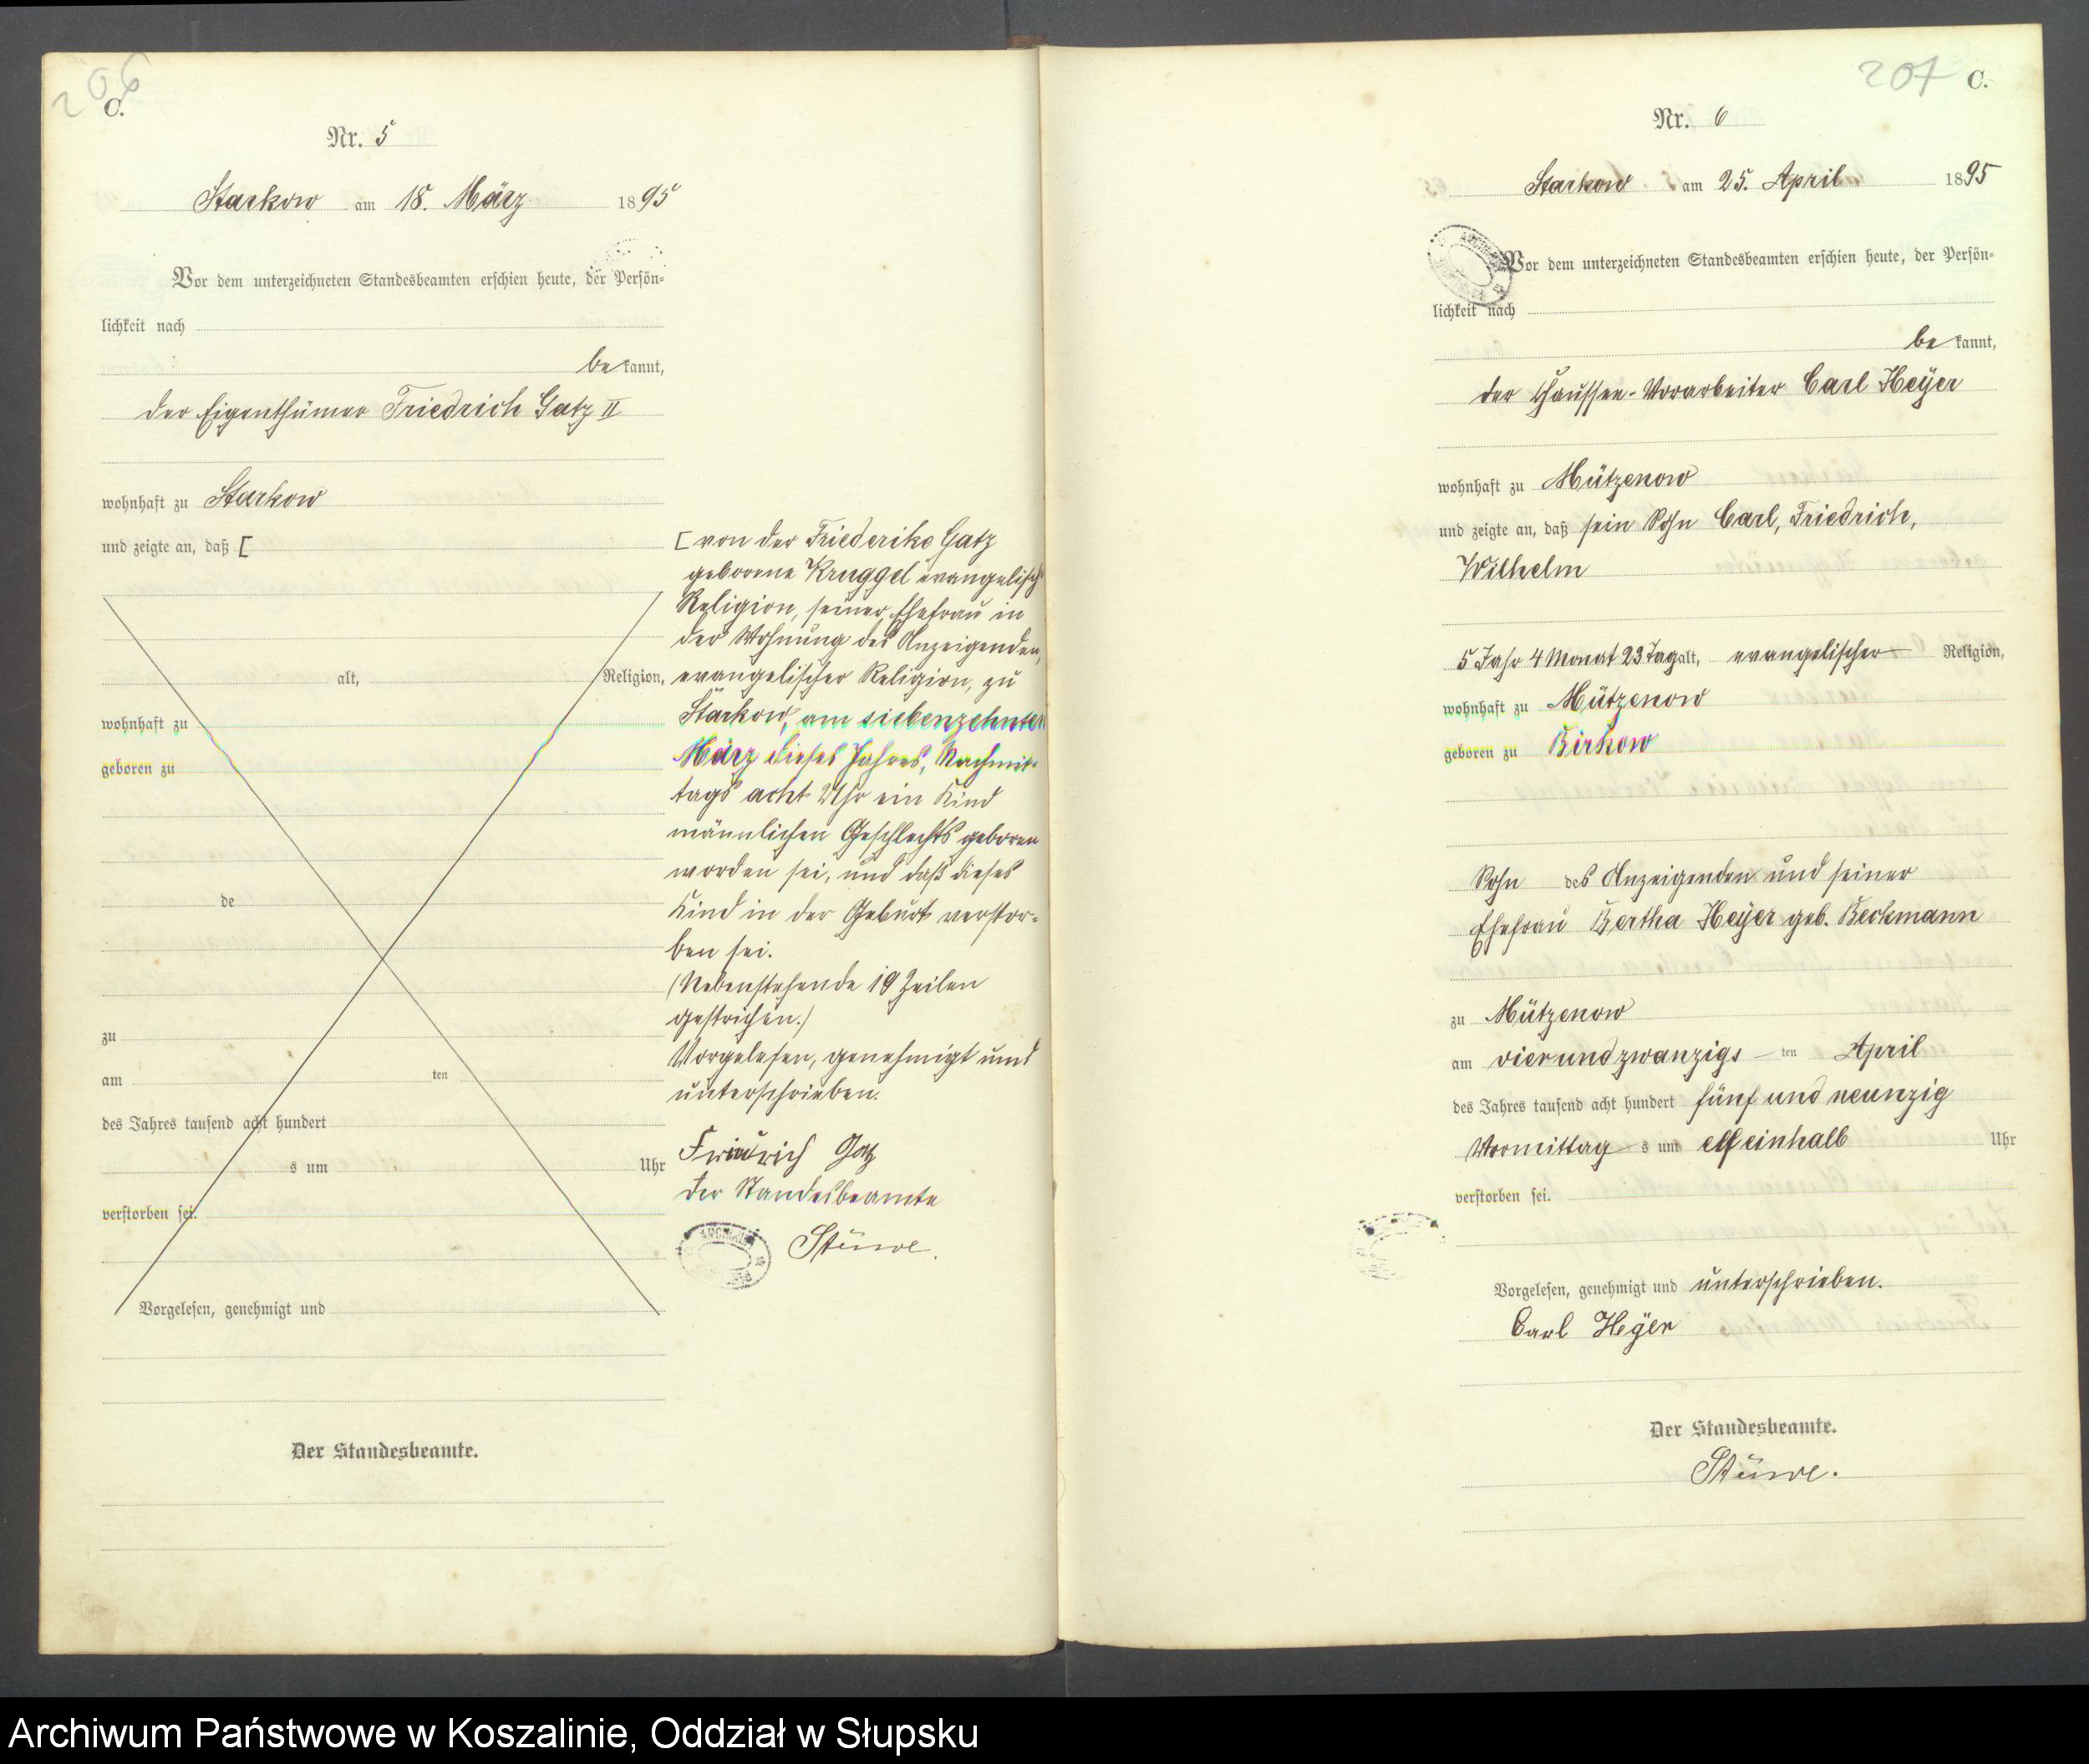 206
C.
Nr. 5
Starkow am 18. März 1895
Vor dem unterzeichneten Standesbeamten erschien heute, der Persön-
lichkeit nach
be kannt,
der Eigenthümer Friedrich Gatz II
wohnhaft zu Starkow
und zeigte an, daß [
alt, Religion,
wohnhaft zu
geboren zu
de
zu
am ten
des Jahres tausend acht hundert
s um Uhr
verstorben sei.
Vorgelesen, genehmigt und
Der Standesbeamte.
[ von der Friederike Gatz
geborene Kruggel evangelisch
Religion, seiner Ehefrau in
der Wohnung des Anzeigenden,
evangelischer Religion, zu
Starkow, am siebenzehnten
März dieses Jahres, Nachmit-
tags acht Uhr ein Kind
männlichen Geschlechts geboren
worden sei, und daß dieses
Kind in der Geburt verstor-
ben sei.
(Nebenstehende 19 Zeilen
gestrichen.)
Vorgelesen, genehmigt und
unterschrieben.
Friedrich Gatz
Der Standesbeamte
Stüwe.
207 C.
Nr. 6
Starkow am 25. April 1895
Vor dem unterzeichneten Standesbeamten erschien heute, der Persön-
lichkeit nach
be kannt,
der Chaussee-Vorarbeiter Carl Heÿer
wohnhaft zu Mützenow
und zeigte an, daß sein Sohn Carl, Friedrich,
Wilhelm
5 Jahr 4 Monat 23 Tag alt, evangelischer Religion,
wohnhaft zu Mützenow
geboren zu Birkow
Sohn des Anzeigenden und seiner
Ehefrau Bertha Heÿer geb. Beckmann
zu Mützenow
am vierundzwanzigs ten April
des Jahres tausend acht hundert fünf und neunzig
Vormittag s um elf einhalb Uhr
verstorben sei.
Vorgelesen, genehmigt und unterschrieben.
Carl Heÿer
Der Standesbeamte.
Stüwe.
Archiwum Państwowe w Koszalinie, Oddział w Słupsku